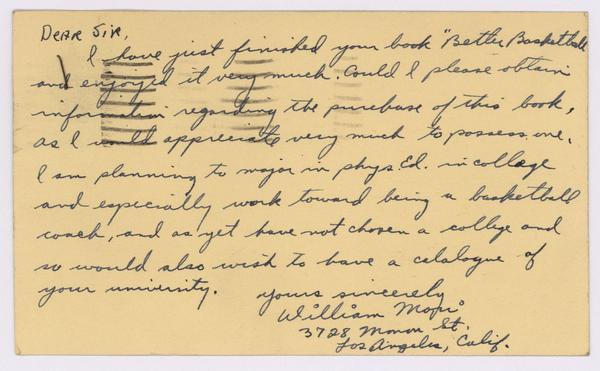 Dear Sir,
I have just finished your book "Better Basketball
and enjoyed it very much. Could I please obtain
information regarding the purchase of this book,
as I would appreciate very much to possess one.
I am planning to major in phys. Ed. in college
and especially work toward being a basketball
coach, and as yet have not chosen a college and
so would also wish to have a catalogue of
your university.
yours sincerely
William Mori
3728 Monon St.
Los Angeles, Calif.